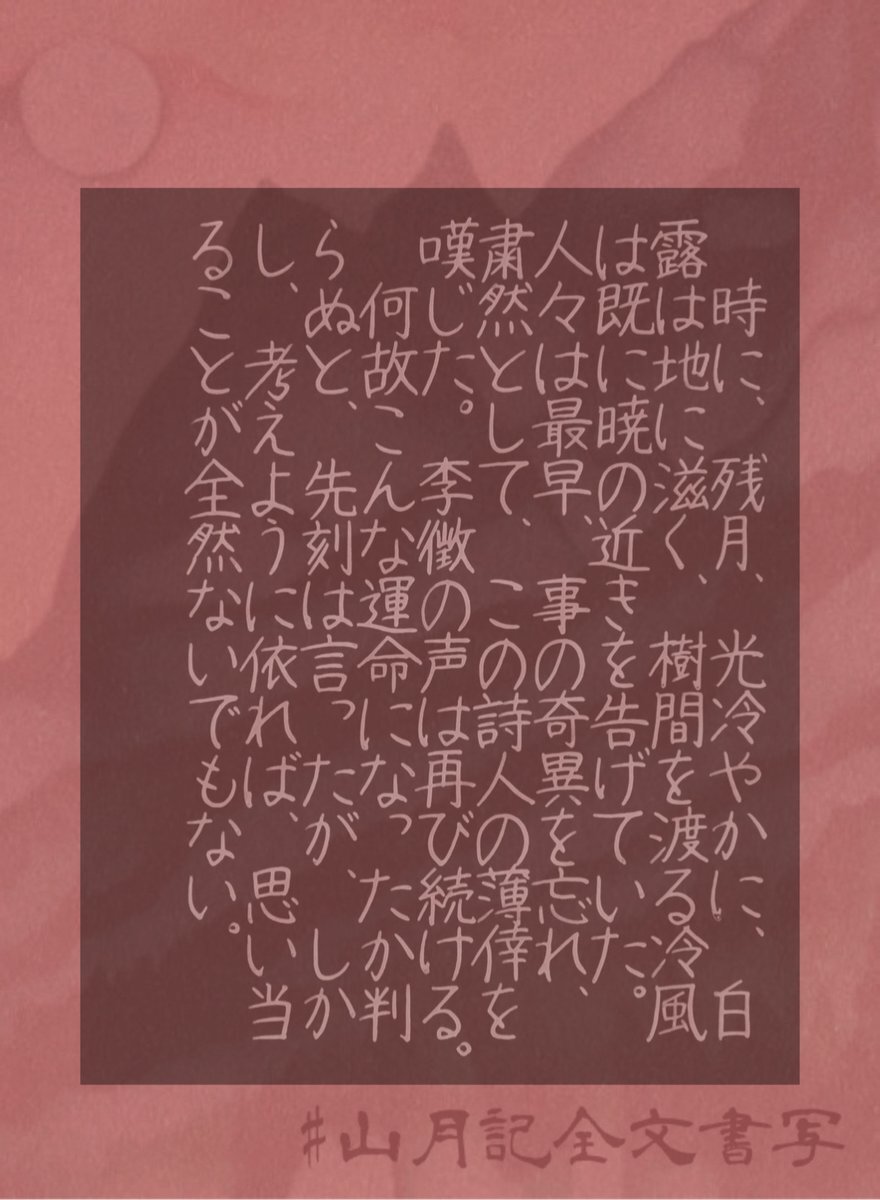 時に、残月、光冷やかに、白
露は地に滋く、樹間を渡る冷風
は既に暁の近きを告げていた。
人々は最早、事の奇異を忘れ、
粛然として、この詩人の薄倖を
嘆じた。李徴の声は再び続ける。
何故こんな運命になったか判
らぬと、先刻は言ったが、しか
し、考えように依れば、思い当
ることが全然ないでもない。
#山月記全文書写